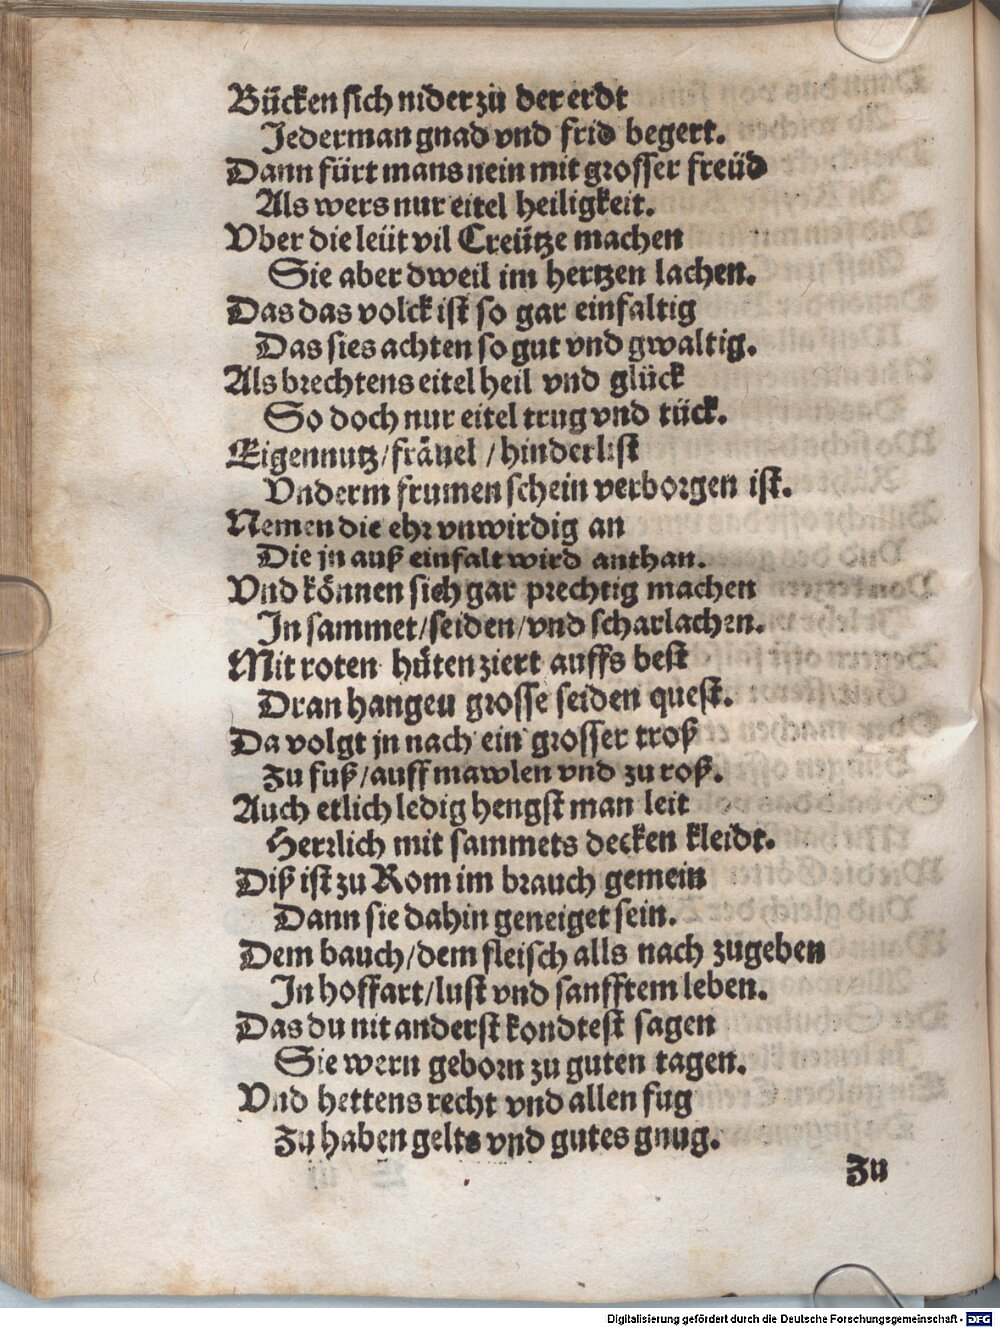 Bücken sich nider zů der erdt
Jederman gnad vnd frid begert.
Dann fürt mans nein mit grosser freüd
Als wers nur eitel heiligkeit.
Vber die leüt vil Creütze machen
Sie aber dweil im hertzen lachen.
Das das volck ist so gar einfaltig
Das sies achten so gut vnd gwaltig.
Als brechtens eitel heil vnd glück
So doch nur eitel trug vnd tück.
Eigennutz/fräuel /hinderlist
Vnderm frumen schein verborgen ist.
Nemen die ehr vnwirdig an
Die jn auß einfalt wird anthan.
Vnd können sich gar prechtig machen
In sammet/seiden/vnd scharlachen.
Mit roten hüten ziert auffs best
Dran hangen grosse seiden quest.
Da volgt jn nach ein grosser troß
Zu fuß/auff mawlen vnd zu roß.
Auch etlich ledig hengst man leit
Herrlich mit sammets decken kleidt.
Diß ist zu Rom im brauch gemein
Dann sie dahin geneiget sein.
Dem bauch/dem fleisch alls nach zugeben
In hoffart/lust vnd sanfftem leben.
Das du nit anderst kondtest sagen
Sie wern geborn zu guten tagen.
Vnd hettens recht vnd allen fug
Zu haben gelts vnd gutes gnug.
Zu
Digitalisierung gefördert durch die Deutsche Forschungsgemeinschaft - DFG